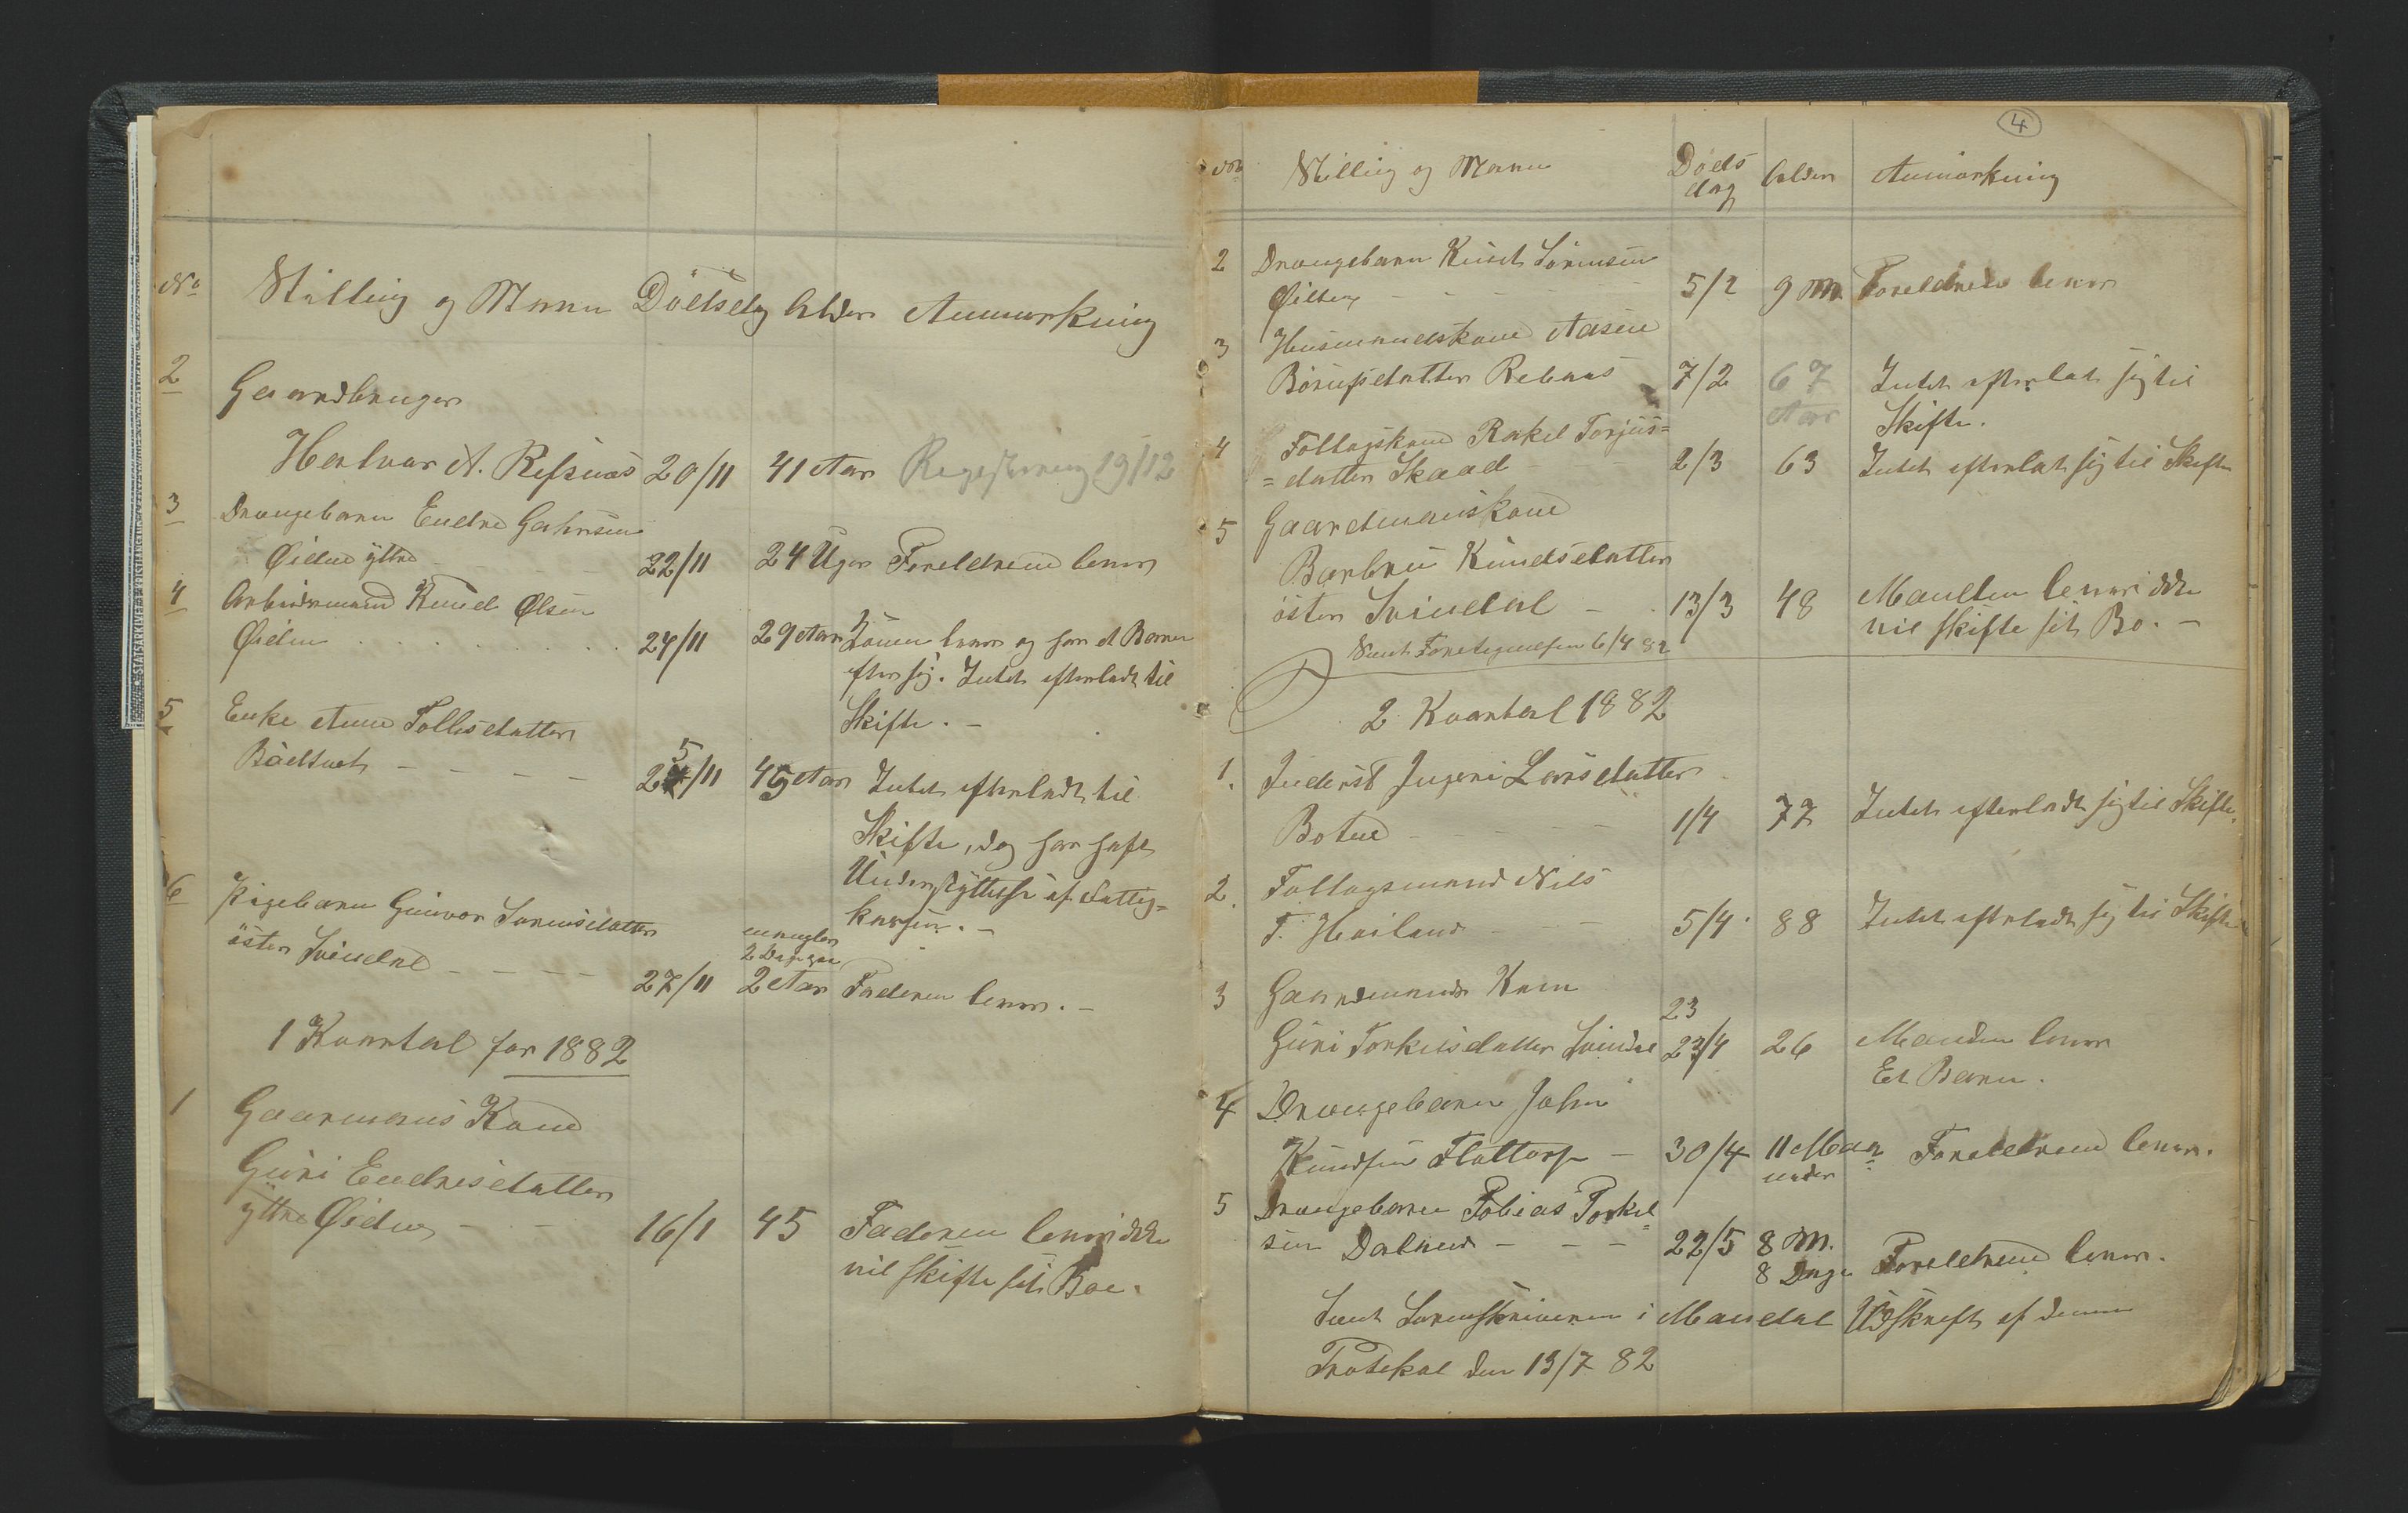 No Stilling og Navn Dödsdag Alder Anmærkning
2 Gaardbruger
Halvor A. Refsnæs 20/11 41 Aar Registrering 19/12
3 Drengebarn Endre Gahrsen
Øidne ÿttre 22/11 24 Uger Foreldrene lever
4 Arbeidsmand Knud Olsen
Øidne 24/11 29 Aar Konen lever og har et Barn
efter sig. Intet efterladt til
Skifte. –
5 Enke Anne Tollisdatter
Bådtvet 25/11 49 Aar Intet efterladt til
Skifte, dog har haft
Understÿttelse af Fattig=
kassen. –
6 Pigebarn Gunvor Sörensdatter mangler
östen Svindal 2 Dage
27/11 2 Aar Faderen lever. –
1 Kvartal for 1882
1 Gaarmans Kone
Guri Endresdatter
ÿttre Øidne 16/1 45 Faderen lever ikke
vil skifte sit Boe.
4
No Stilling og Navn Döds Alder Anmærkning
dag
2 Drengebarn Knud Sörensen
Øidne 5/2 9 M. Foreldrene lever
3 Husmandskone Aasne
Börufsdatter Refnæs 7/2 67 Intet efterlat sig til
Aar Skifte.
4 Follagskone Rakel Torjus=
=datter Skaad 2/3 63 Intet efterlat sig til Skifte
5 Gaardmanskone
Barbru Knudsdatter
östen Svindal 13/3 48 Manden lever ikke
vil skifte sit Bo. –
Sent Fortegnelsen 6/4 82
2 Kvartal 1882
1. Inderst Ingeri Larsdatter
Botne 1/4 77 Intet efterladt sig til Skifte.
2. Follagsmand Nils
T. Heiland 5/4 88 Intet efterladt sig til Skifte
3 Gaardmands Kone 23
Guri Torkilsdatter Svindal 23/4 26 Manden lever
Et Barn.
4 Drengebarn John
Knudsen Flottorp – 30/4 11 Maa= Foreldrene lever.
neder
5 Drengebarn Tobias Torkel=
sen Dalned 22/5 8 M.
8 Dage Foreldrene lever.
Sent Sorenskriveren i Mandal Udskrift af denne
Protokol den 13/7 82